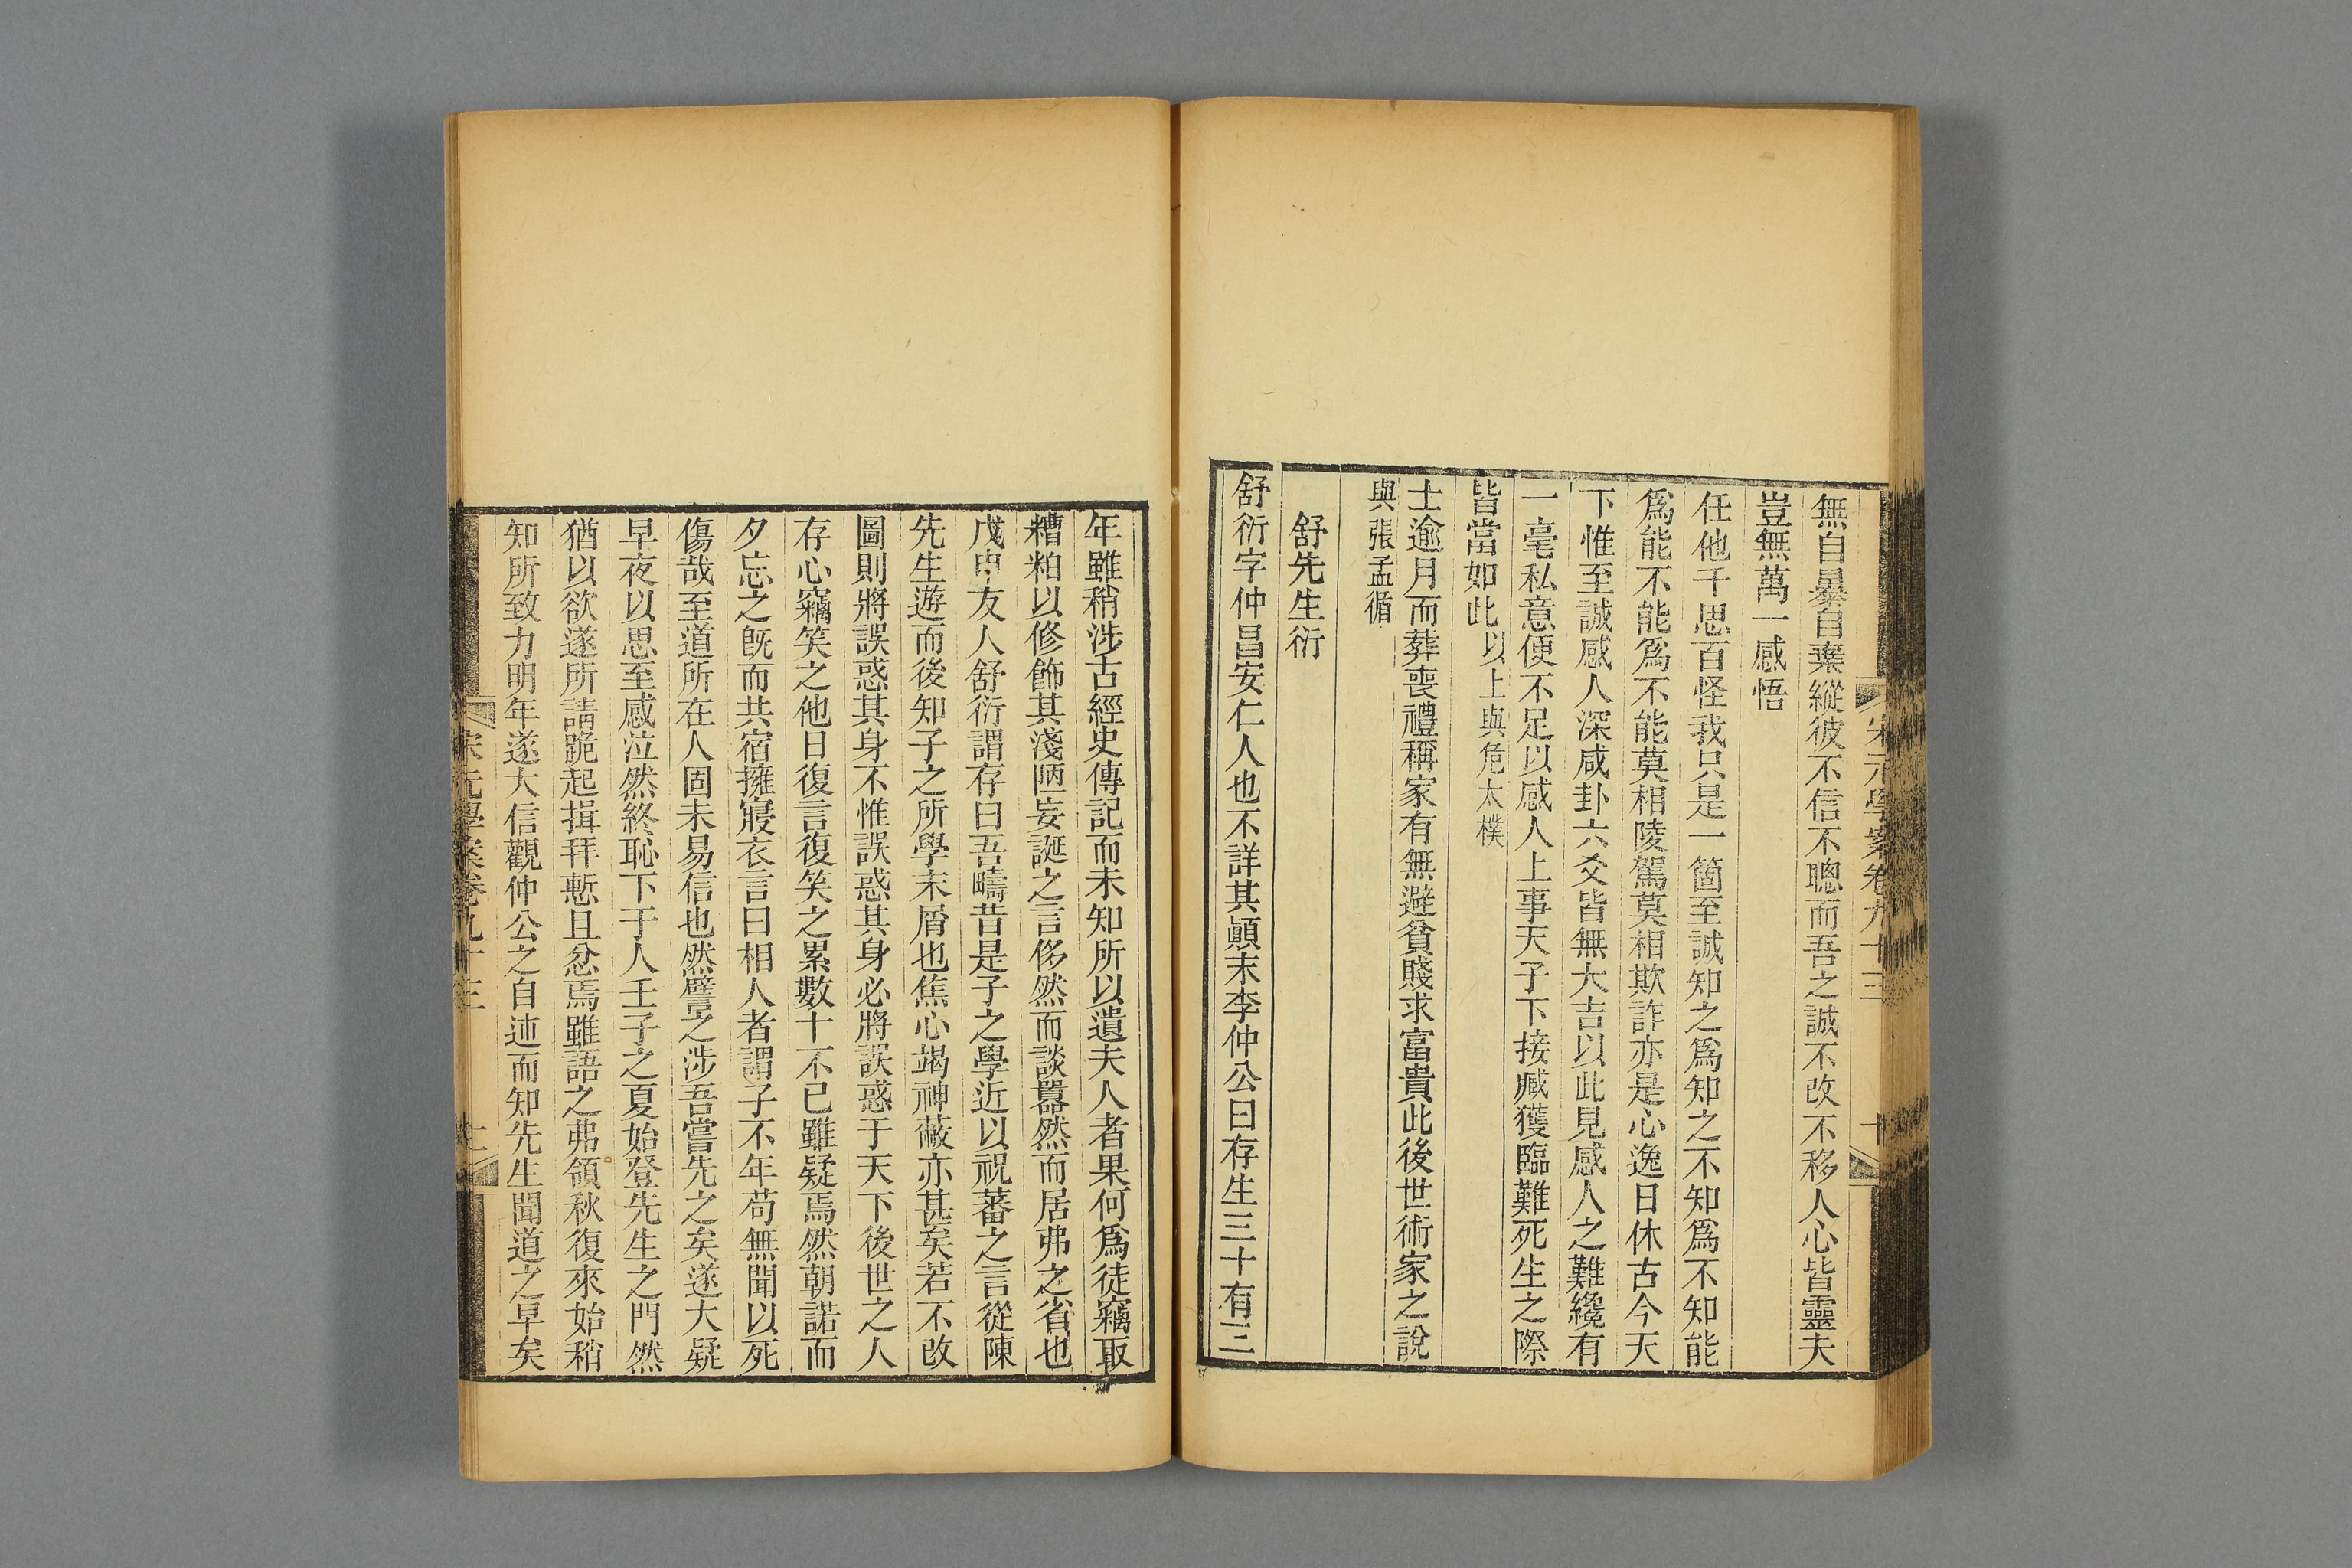 宋元學案卷九十三 十
無自暴自棄縱彼不信不聰而吾之誠不改不移人心皆靈夫
豈無萬一感悟
任他千思百怪我只是一箇至誠知之爲知之不知爲不知能
爲能不能爲不能莫相陵駕莫相欺詐亦是心逸日休古今天
下惟至誠感人深咸卦六爻皆無大吉以此見感人之難纔有
一毫私意便不足以感人上事天子下接臧獲臨難死生之際
皆當如此以上與危太樸
士逾月而葬喪禮稱家有無避貧賤求富貴此後世術家之說
與張孟循
舒先生衍
舒衍字仲昌安仁人也不詳其顚末李仲公曰存生三十有三
年雖稍涉古經史傳記而未知所以遺夫人者果何爲徒竊取
糟粕以修飾其淺陋妄誕之言侈然而談囂然而居弗之省也
戊申友人舒衍謂存曰吾疇昔是子之學近以祝蕃之言從陳
先生遊而後知子之所學末屑也焦心竭神蔽亦甚矣若不改
圖則將誤惑其身不惟誤惑其身必將誤惑于天下後世之人
存心竊笑之他日復言復笑之累數十不已雖疑焉然朝諾而
夕忘之旣而共宿擁寢衣言曰相人者謂子不年苟無聞以死
傷哉至道所在人固未易信也然譬之涉吾嘗先之矣遂大疑
早夜以思至感泣然終恥下于人壬子之夏始登先生之門然
猶以欲遂所請跪起揖拜慙且忿焉雖語之弗領秋復來始稍
知所致力明年遂大信觀仲公之自述而知先生聞道之早矣
宋元學案卷九十三 十一